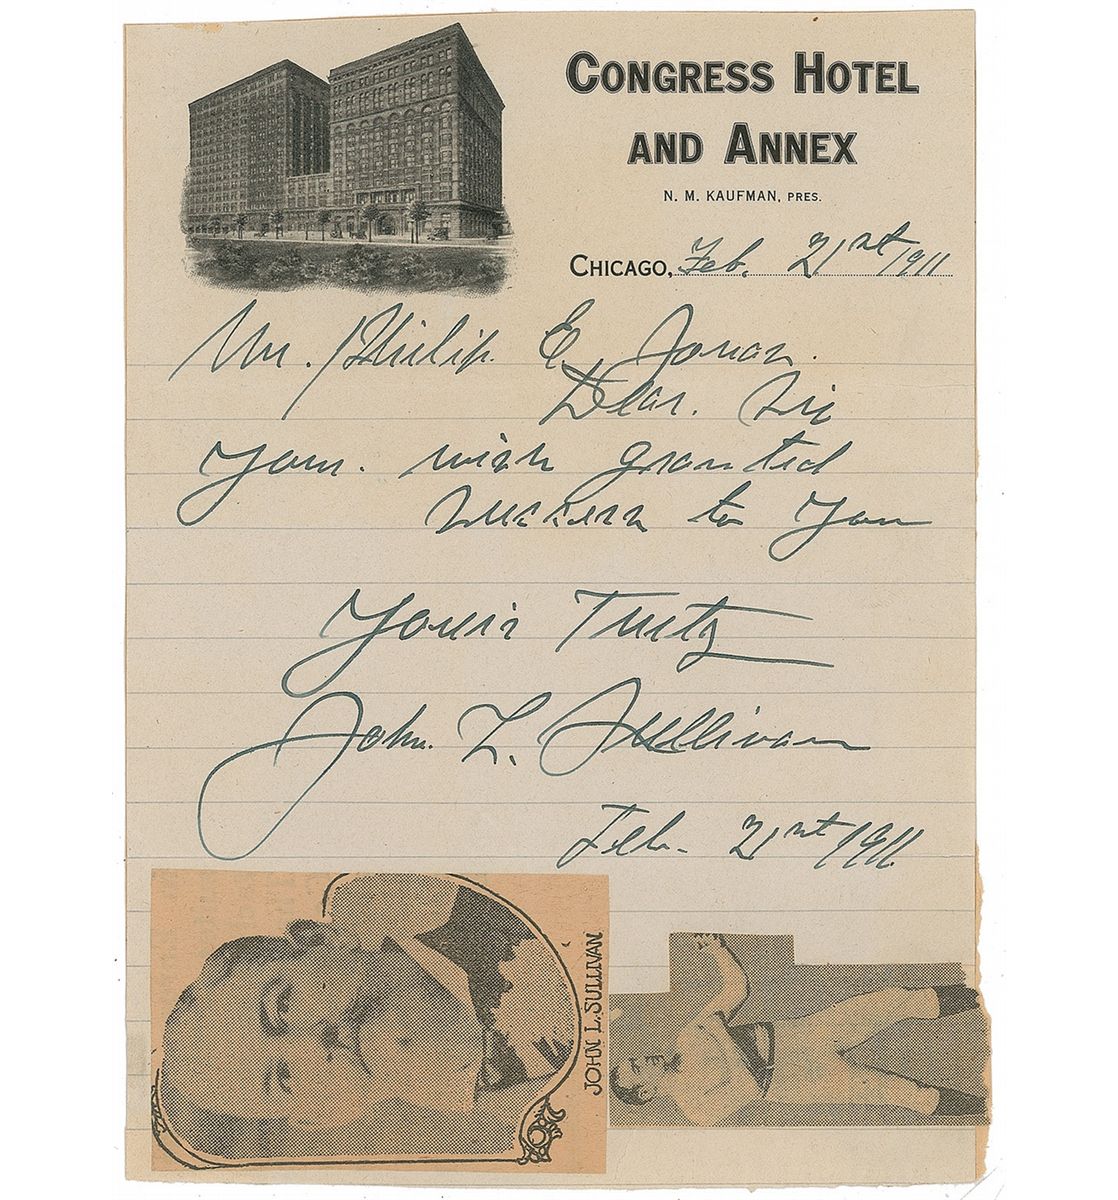 CONGRESS HOTEL
AND ANNEX
N. M. KAUFMAN, PRES.
CHICAGO, Feb. 21st 1911
Mr. Philip E. Jones.
Dear. Sir
Your. wish granted
success to you
Yours Truly
John. L. Sullivan
Feb. 21st 1911.
JOHN L. SULLIVAN